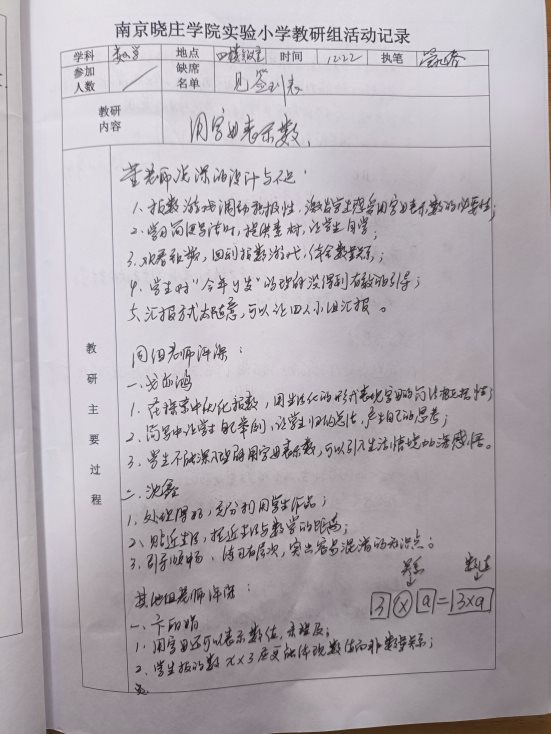 南京晓庄学院实验小学教研组活动记录
学科 数学 地点 四楼教室 时间 12.22 执笔
参加人数 缺席名单 见签到表
教研内容 用字母表示数
教研主要过程
董老师说课的设计与不足:
1. 报数游戏调动积极性,激发学生感受用字母表示数的必要性;
2. 学习简便写法时,提供素材,让学生自学;
3. 观看视频,回到报数游戏,体会数量关系;
4. 学生对“今年y岁”的理解没得到有效的引导;
5. 汇报方式太随意,可以让四人小组汇报。
同组老师评课:
1. 在探索中优化报数,用生活化的形式表现字母的简洁概括性;
2. 简写中让学生自己举例,让学生归纳总结,产生自己的思考;
3. 学生不能深入理解用字母表示数,可以引入生活情境加深感悟。
二、沈鑫
1. 处理得好,充分利用学生作品;
2. 贴近生活,拉近生活与数学的距离;
3. 引导顺畅,练习有层次,突出容易混淆的知识点。
其他组老师评课:
关系 数值
3 × a = 3×a
1. 用字母还可以表示数值,未提及;
2. 学生报的数 x×3 应更能体现数值而非数学关系;